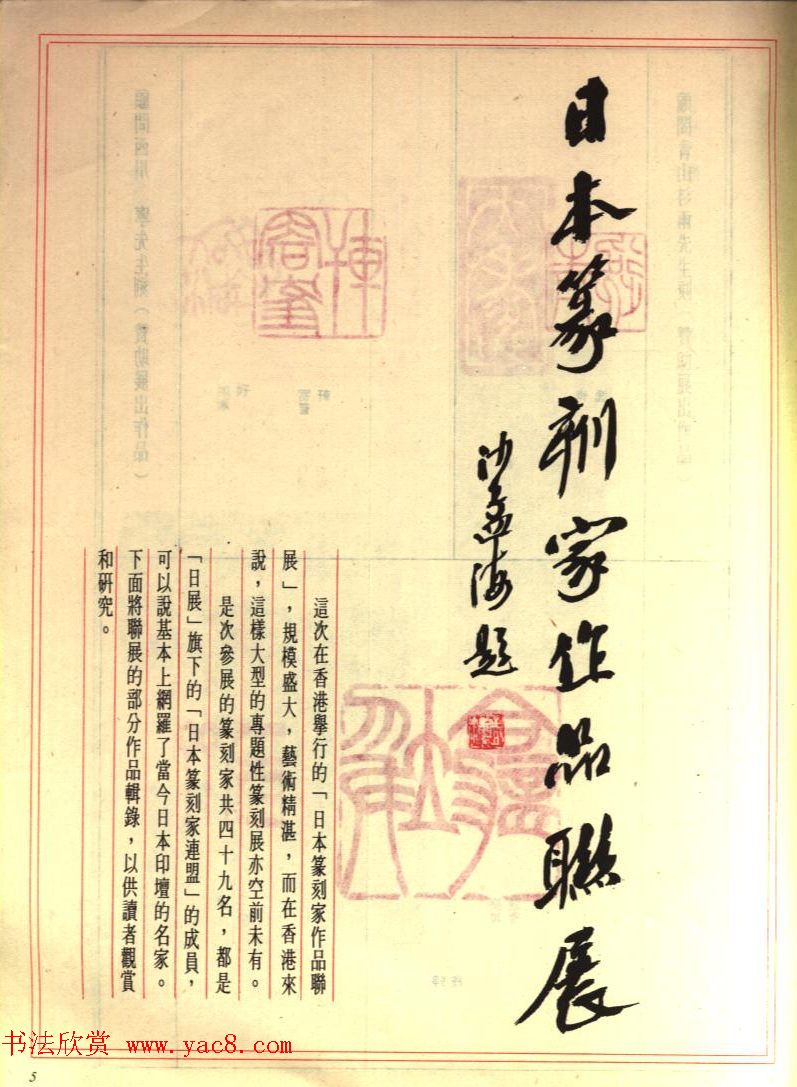 日本篆刻家作品聯展
沙孟海題
這次在香港舉行的「日本篆刻家作品聯
展」，規模盛大，藝術精湛，而在香港來
說，這樣大型的專題性篆刻展亦空前未有。
是次參展的篆刻家共四十九名，都是
「日展」旗下的「日本篆刻家連盟」的成員，
可以說基本上網羅了當今日本印壇的名家。
下面將聯展的部分作品輯錄，以供讀者觀賞
和研究。
书法欣赏 www.yac8.com
5